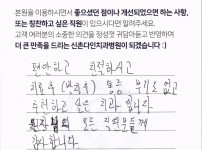 본원을 이용하시면서 좋으셨던 점이나 개선되었으면 하는 사항,
또는 칭찬하고 싶은 직원이 있으시다면 말씀해주세요.
고객 여러분의 소중한 의견을 정성껏 귀담아듣고 반영하여
더 큰 만족을 드리는 신촌다인치과병원이 되겠습니다 :)
편안하고 친절하시고
치료 후 통증 부기도 없고
추천하고 싶은 치과 입니다
원장님외 모든 직원분들께
감사합니다